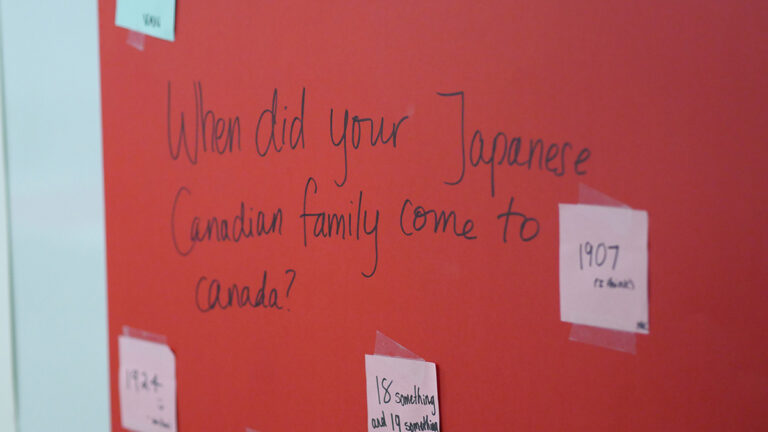 When did your Japanese
Canadian family come to
canada?
1907
1924
18 something
and 19 something